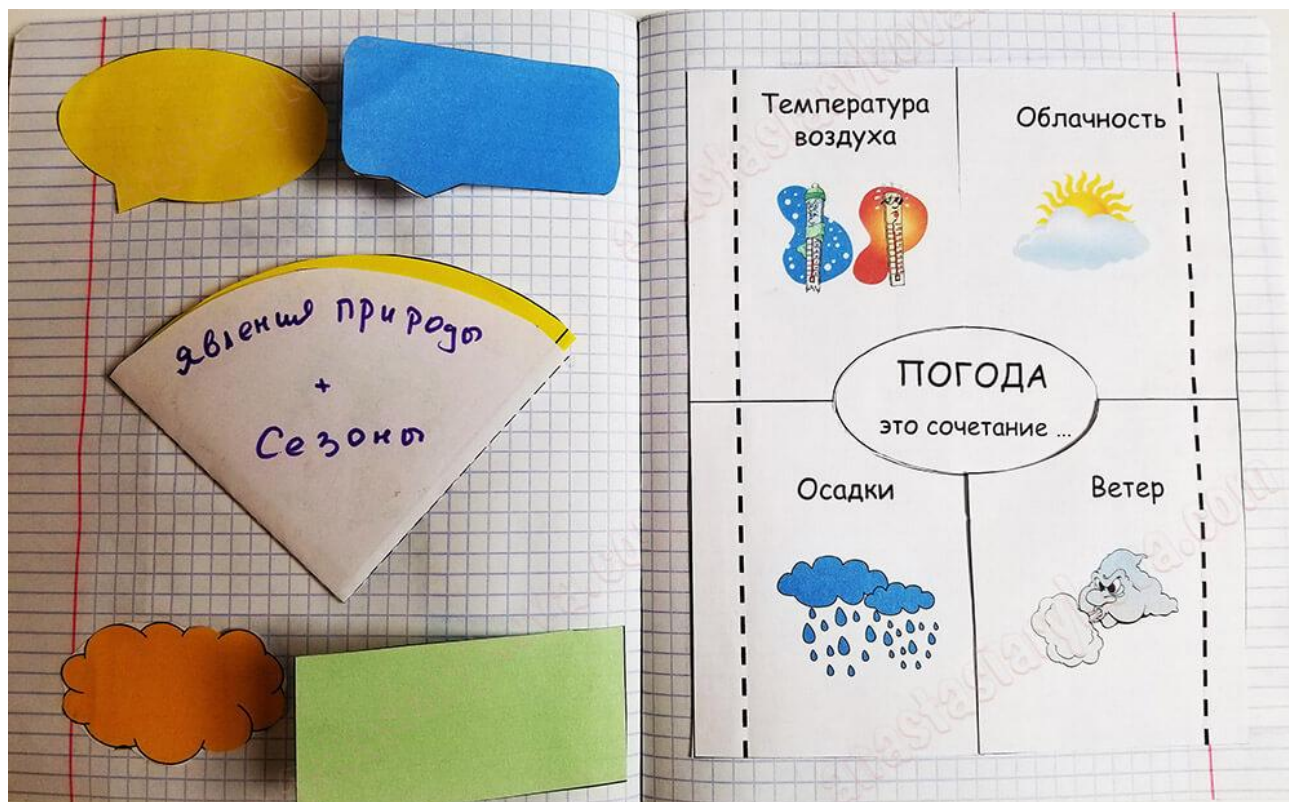 явления природы
+
Сезоны
Температура
воздуха
Облачность
ПОГОДА
это сочетание ...
Осадки
Ветер